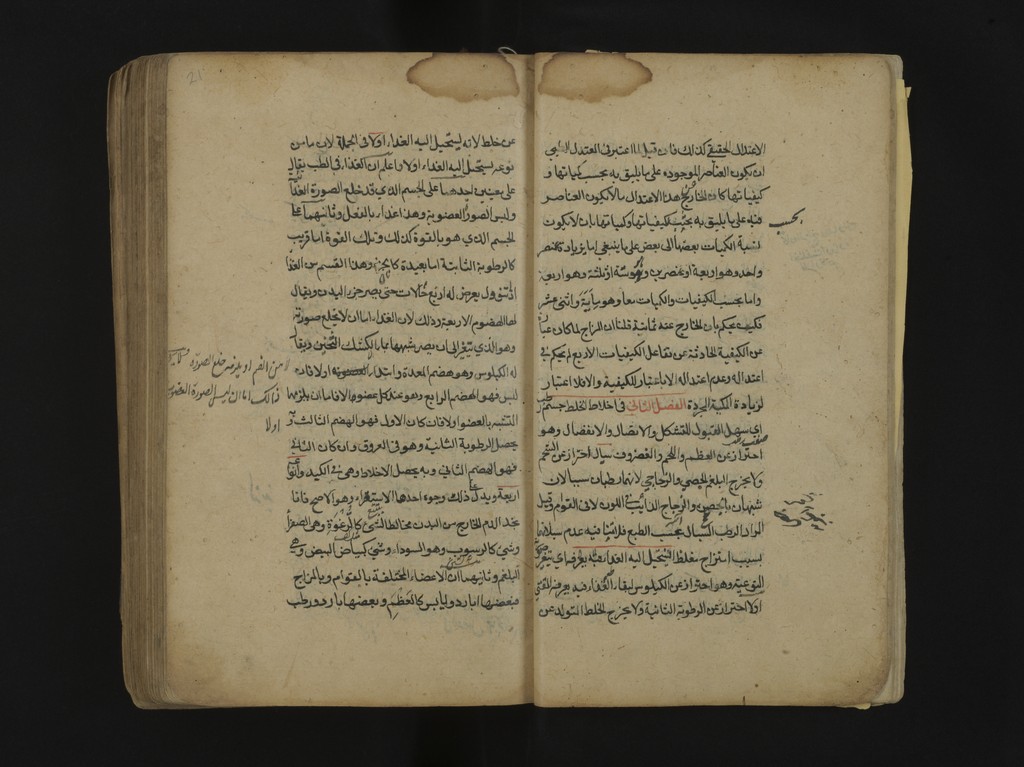 الاعتدال الحقيقي كذلك فان قيل الاعتبر في المعتدل الطبي
ان يكون العناصر الموجودة على ما يليق به بحسب كمياتها و
كيفياتها كان الخارج عن هذا الاعتدال ما لا يكون العناصر
فيه على ما يليق به بحسب كيفياتها وكمياتها بان لا يكون
بحسب
نسبة الكميات بعضها الى بعض على ما ينبغي اما بزيادة عنصر
واحد وهو اربعة او عنصرين وهو ستة او ثلثة وهو اربعة
واما بحسب الكيفيات والكميات معا وهو مائة واثنى عشر
فكيف يحكم بان الخارج عنه ثمانية قلنا ان المزاج لما كان عبارة
عن الكيفية الحادثة عن تفاعل الكيفيات الاربع لم يحكم في
اعتداله وعدم اعتداله الا باعتبار الكيفية والا فلا اعتبار
لزيادة الكمية المجردة الفصل الثاني في اخلاط الخلط جسم رطب
اي سهل القبول للتشكل والاتصال والانفصال وهو
احتراز عن العظم واللحم والغضروف سيال احتراز عن الشحم
ولا يخرج البلغم الجصي والزجاجي لانهما رطبان سيالان
شبيهان بالجص والزجاج الذائب في اللون لا في القوام وقيل
المراد الرطب السيال بحسب الطبع فلا ينافيه عدم سيلانهما
بسبب امتزاج مغلظ يستحيل اليه الغذاء بقوته يعرفه اي يتغير صورته
النوعية وهو احتراز عن الكيلوس لبقاء الغذاء فيه بعرفه المعنى
اولا احتراز عن الرطوبة الثانية ولا يخرج الخلط المتولد عن
عن خلط لانه يستحيل اليه الغذاء اولا في الجملة لان ما من
نوعه يستحيل اليه الغذاء اولا واعلم ان الغذاء في الطب يقال
على معنيين احدهما على الجسم الذي قد خلع الصورة الغذائية
ولبس الصورة العضوية وهذا غذاء بالفعل وثانيهما على
الجسم الذي هو بالقوة كذلك وتلك القوة اما قريب
كالرطوبة الثانية اما بعيدة كالخبز وهذا القسم من الغذاء
اذا تنوول يعرض له اربع حالات حتى يصير جزء البدن ويقال
لها الهضوم الاربعة وذلك لان الغذاء اما ان لا يخلع صورته
وهو الذي يتغير الى ان يصير شبيها بماء الكشك الثخين ويقال
له الكيلوس وهو هضم المعدة وابتداء اولا فان
لبس فهو الهضم الرابع وهو عند كل عضو والا فاما ان يلزمها
التشبه بالعضو اولا فان كان الاول فهو الهضم الثالث و
يحصل الرطوبة الثانية وهو في العروق وان كان الثاني
فهو الهضم الثاني وبه يحصل الاخلاط وهي في الكبد وانواعها
اربعة ويدل على ذلك وجوه احدها الاستقراء وهو الاصح فانا
نجد الدم الخارج من البدن مخالطا لشيء كالرغوة وهي الصفراء
وشيء كالرسوب وهو السوداء وشيء كبياض البيض وهي
البلغم وثانيهما ان الاعضاء المختلفة بالقوام وبالمزاج
فبعضها بارد ويابس كالعظم وبعضها بارد ورطب